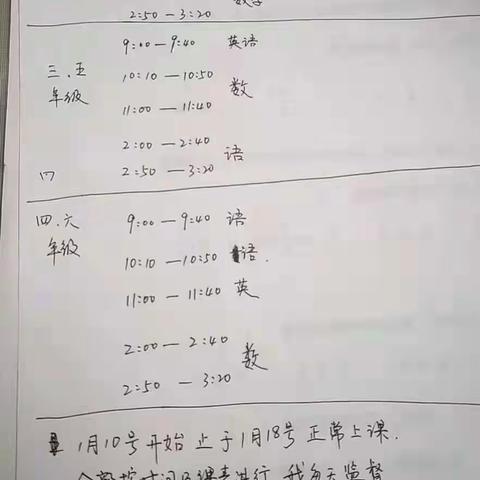 2:50 — 3:20 数学
9:00 — 9:40 英语
三.五年级 10:10 — 10:50 数
11:00 — 11:40
2:00 — 2:40 语
四 2:50 — 3:20
四.六年级 9:00 — 9:40 语
10:10 — 10:50 语.
11:00 — 11:40 英
2:00 — 2:40 数
2:50 — 3:20
1月10号开始 止于1月18号 正常上课.
时间及课表进行,我每天监督